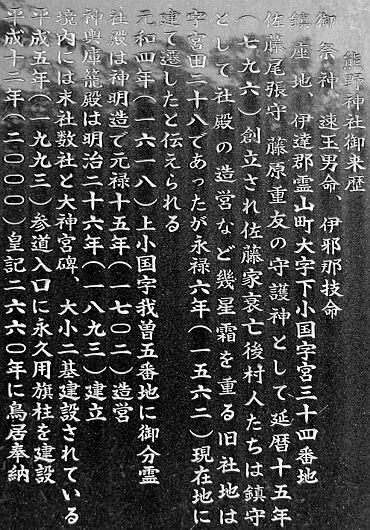 熊野神社御来歴
御祭神　速玉男命、伊耶那技命
鎮座地　伊達郡霊山町大字下小国字宮三十四番地
佐藤尾張守　藤原重友の守護神として延暦十五年
（七九六）創立され佐藤家哀亡後村人たちは鎮守
として社殿の造営など幾星霜を重る旧社地は
字宮田二十八であったが永禄六年（一五六二）現在地に
建て遷したと伝えられる
元和四年（一六一八）上小国字我曽五番地に御分霊
社殿は神明造で元禄十五年（一七〇二）造営
神輿庫籠殿は明治二十六年（一八九三）建立
境内には末社数社と大神宮碑、大小二基建設されている
平成五年（一九九三）参道入口に永久用旗柱を建設
平成十二年（二〇〇〇）皇記二六六〇年に鳥居奉納